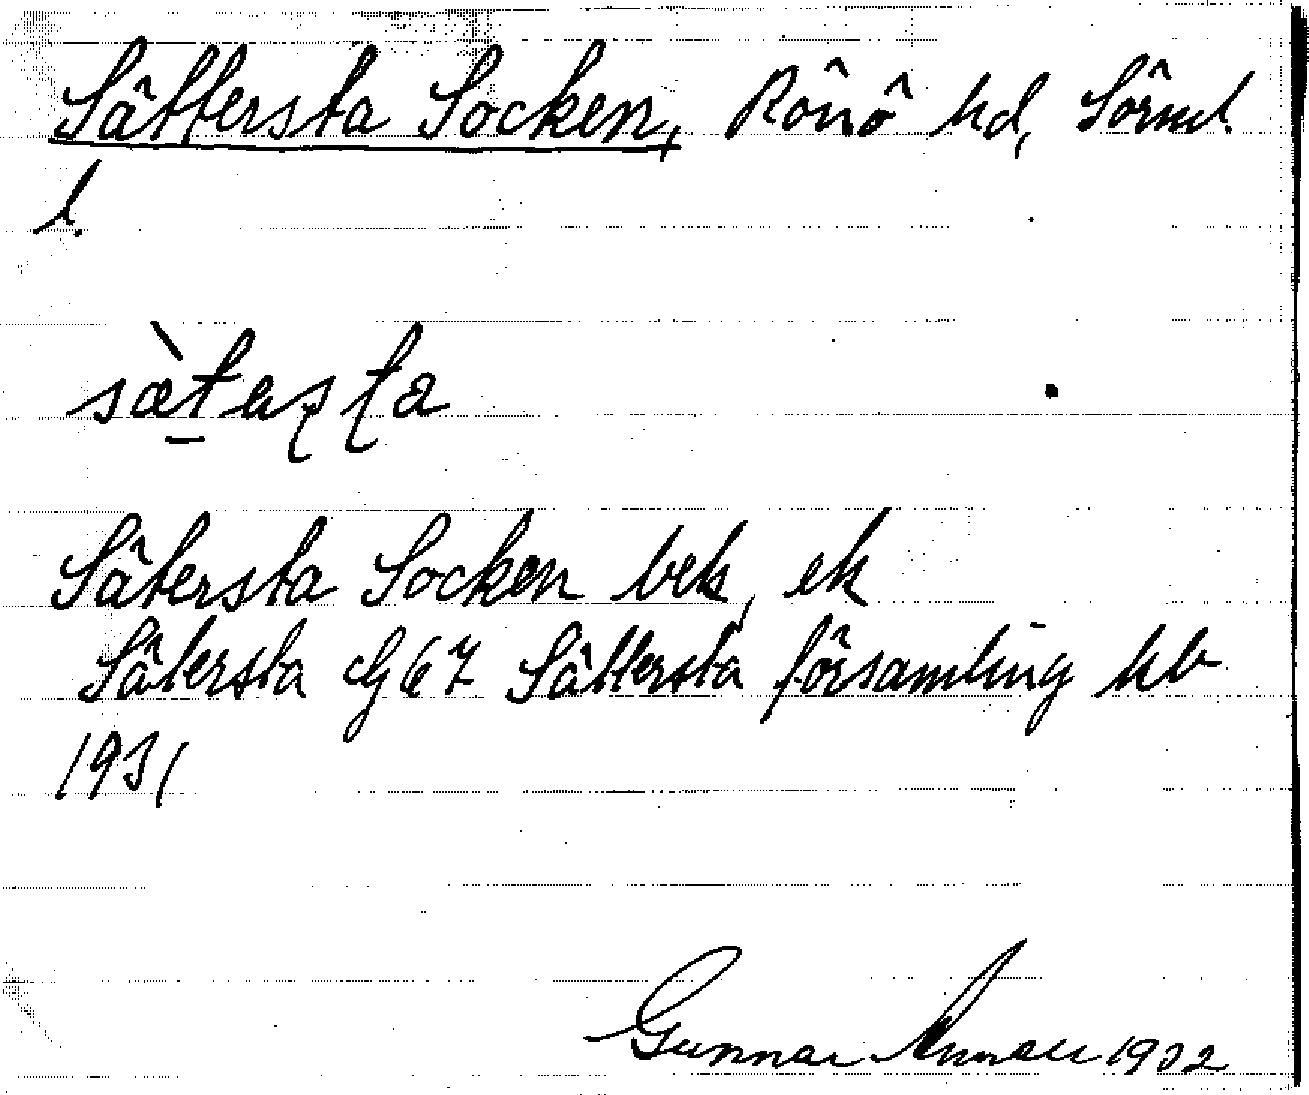 Sättersta Socken, Rönö hd, Sörml.
l.
sæ̀tasta
Sätersta Socken bek, ek
Sätersta GG 67 Sättersta församling kb
1931
Gunnar 1932